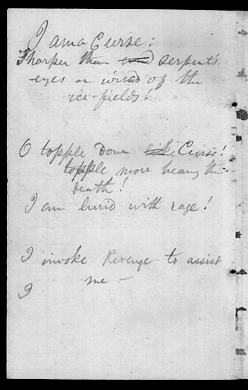 I am a Curse:
Sharper than serpent's
eyes or wind of the
ice-fields!
O topple down Curse!
topple more heavy than
death!
I am lurid with rage!
I invoke Revenge to assist
me —
I